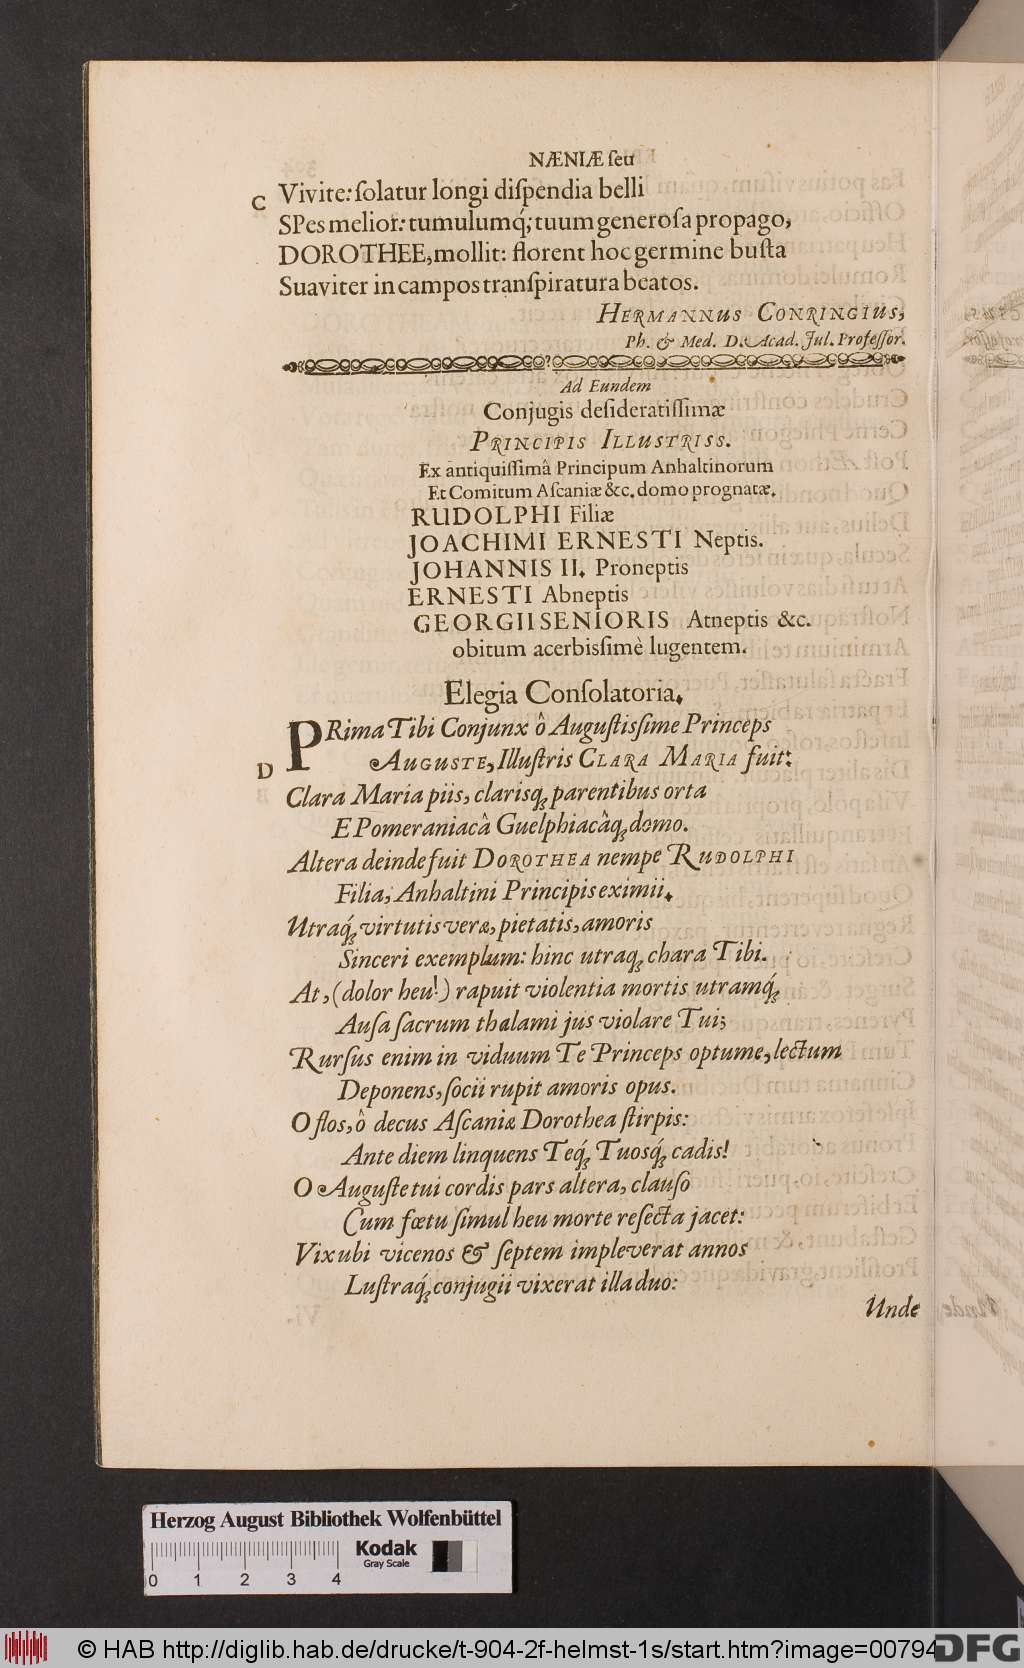 NÆNIÆ ſeu
C
Vivite: ſolatur longi diſpendia belli
SPes melior: tumulumq́; tuum generoſa propago,
DOROTHEE, mollit: florent hoc germine buſta
Suaviter in campos tranſpiratura beatos.
HERMANNUS CONRINGIUS,
Ph. & Med. D. Acad. Jul. Profeſſor.
Ad Eundem
Conjugis deſideratiſſimæ
PRINCIPIS ILLUSTRISS.
Ex antiquiſſimâ Principum Anhaltinorum
Et Comitum Aſcaniæ &c. domo prognatæ.
RUDOLPHI Filiæ
JOACHIMI ERNESTI Neptis.
JOHANNIS II. Proneptis
ERNESTI Abneptis
GEORGII SENIORIS Atneptis &c.
obitum acerbiſſimè lugentem.
Elegia Conſolatoria.
PRima Tibi Conjunx ô Auguſtisſime Princeps
AUGUSTE, Illuſtris CLARA MARIA fuit:
D
Clara Maria piis, clarisq; parentibus orta
E Pomeraniacâ Guelphiacâq; domo.
Altera deinde fuit DOROTHEA nempe RUDOLPHI
Filia, Anhaltini Principis eximii.
Utraq́; virtutis veræ, pietatis, amoris
Sinceri exemplum: hinc utraq; chara Tibi.
At, (dolor heu!) rapuit violentia mortis utramq́;
Auſa ſacrum thalami jus violare Tui;
Rurſus enim in viduum Te Princeps optume, lectum
Deponens, ſocii rupit amoris opus.
O flos, ô decus Aſcaniæ Dorothea ſtirpis:
Ante diem linquens Teq́; Tuosq́; cadis!
O Auguſte tui cordis pars altera, clauſo
Cum fœtu ſimul heu morte reſecta jacet:
Vix ubi vicenos & ſeptem impleverat annos
Luſtraq́; conjugii vixerat illa duo:
Unde
Herzog August Bibliothek Wolfenbüttel
Kodak
Gray Scale
0 1 2 3 4
© HAB http://diglib.hab.de/drucke/t-904-2f-helmst-1s/start.htm?image=00794
DFG